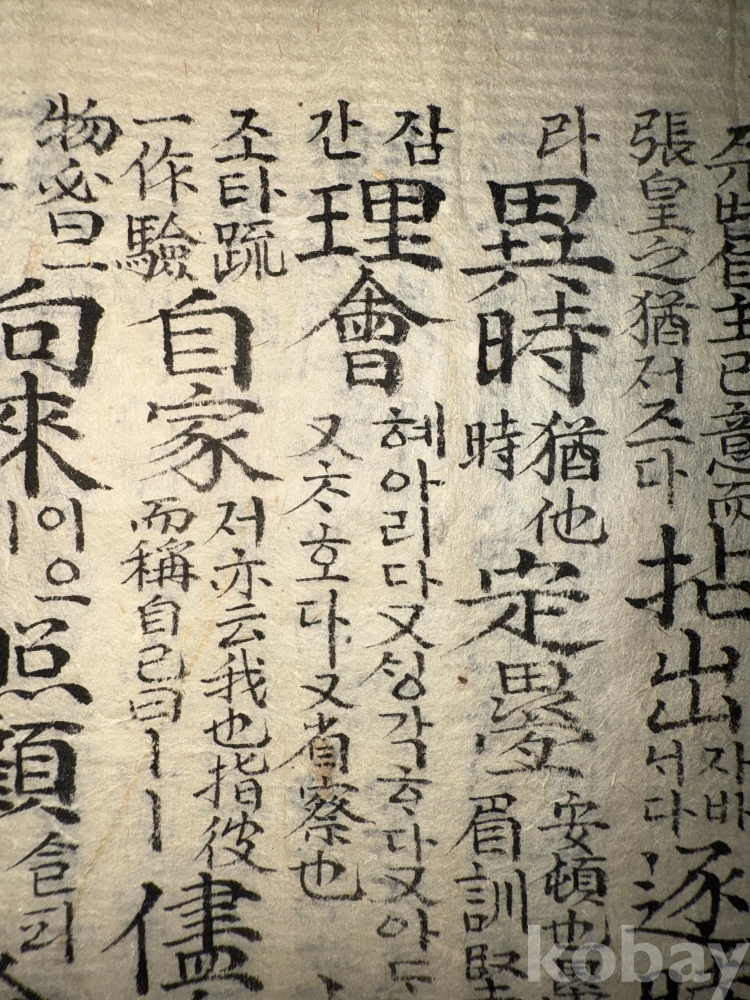 自主己意而
張皇之猶저즈다
拈出
자바
너다
逐時
라
異時
猶他
時
定疊
安頓也
眉訓堅
잠
간
理會
혜아리다又싱각ᄒᆞ다又아
又ᄎᆞᄎᆞ호다又省察也
조타疏
一作驗
自家
저亦云我也指彼
而稱自己曰ㅣㅣ
儘
物必曰一
向來
이으
照顧
kobay